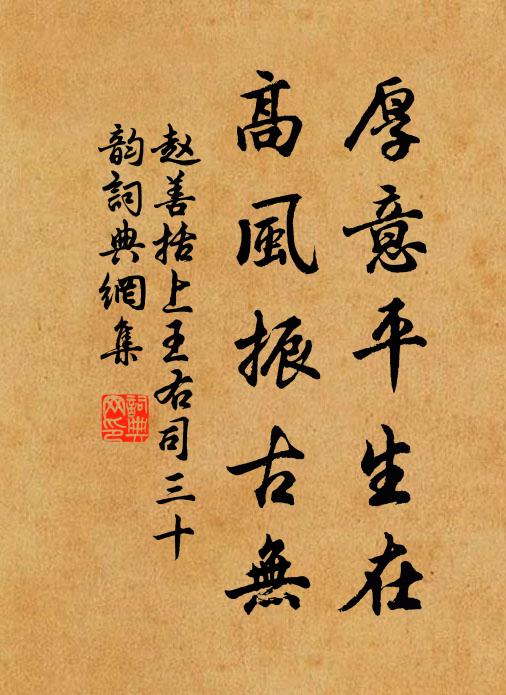 厚意平生在
高風振古無
赵善括上王右司三十
韵詞典網集
詞典網印